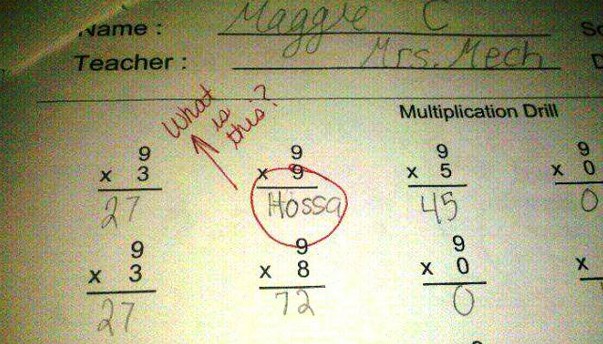 Name : Maggie C
Teacher : Mrs. Mech
Multiplication Drill
What
is
this?
9 9 9 9
x 3 x 9 x 5 x 0
27 Hossa 45 0
9 9 9
x 3 x 8 x 0 x
27 72 0